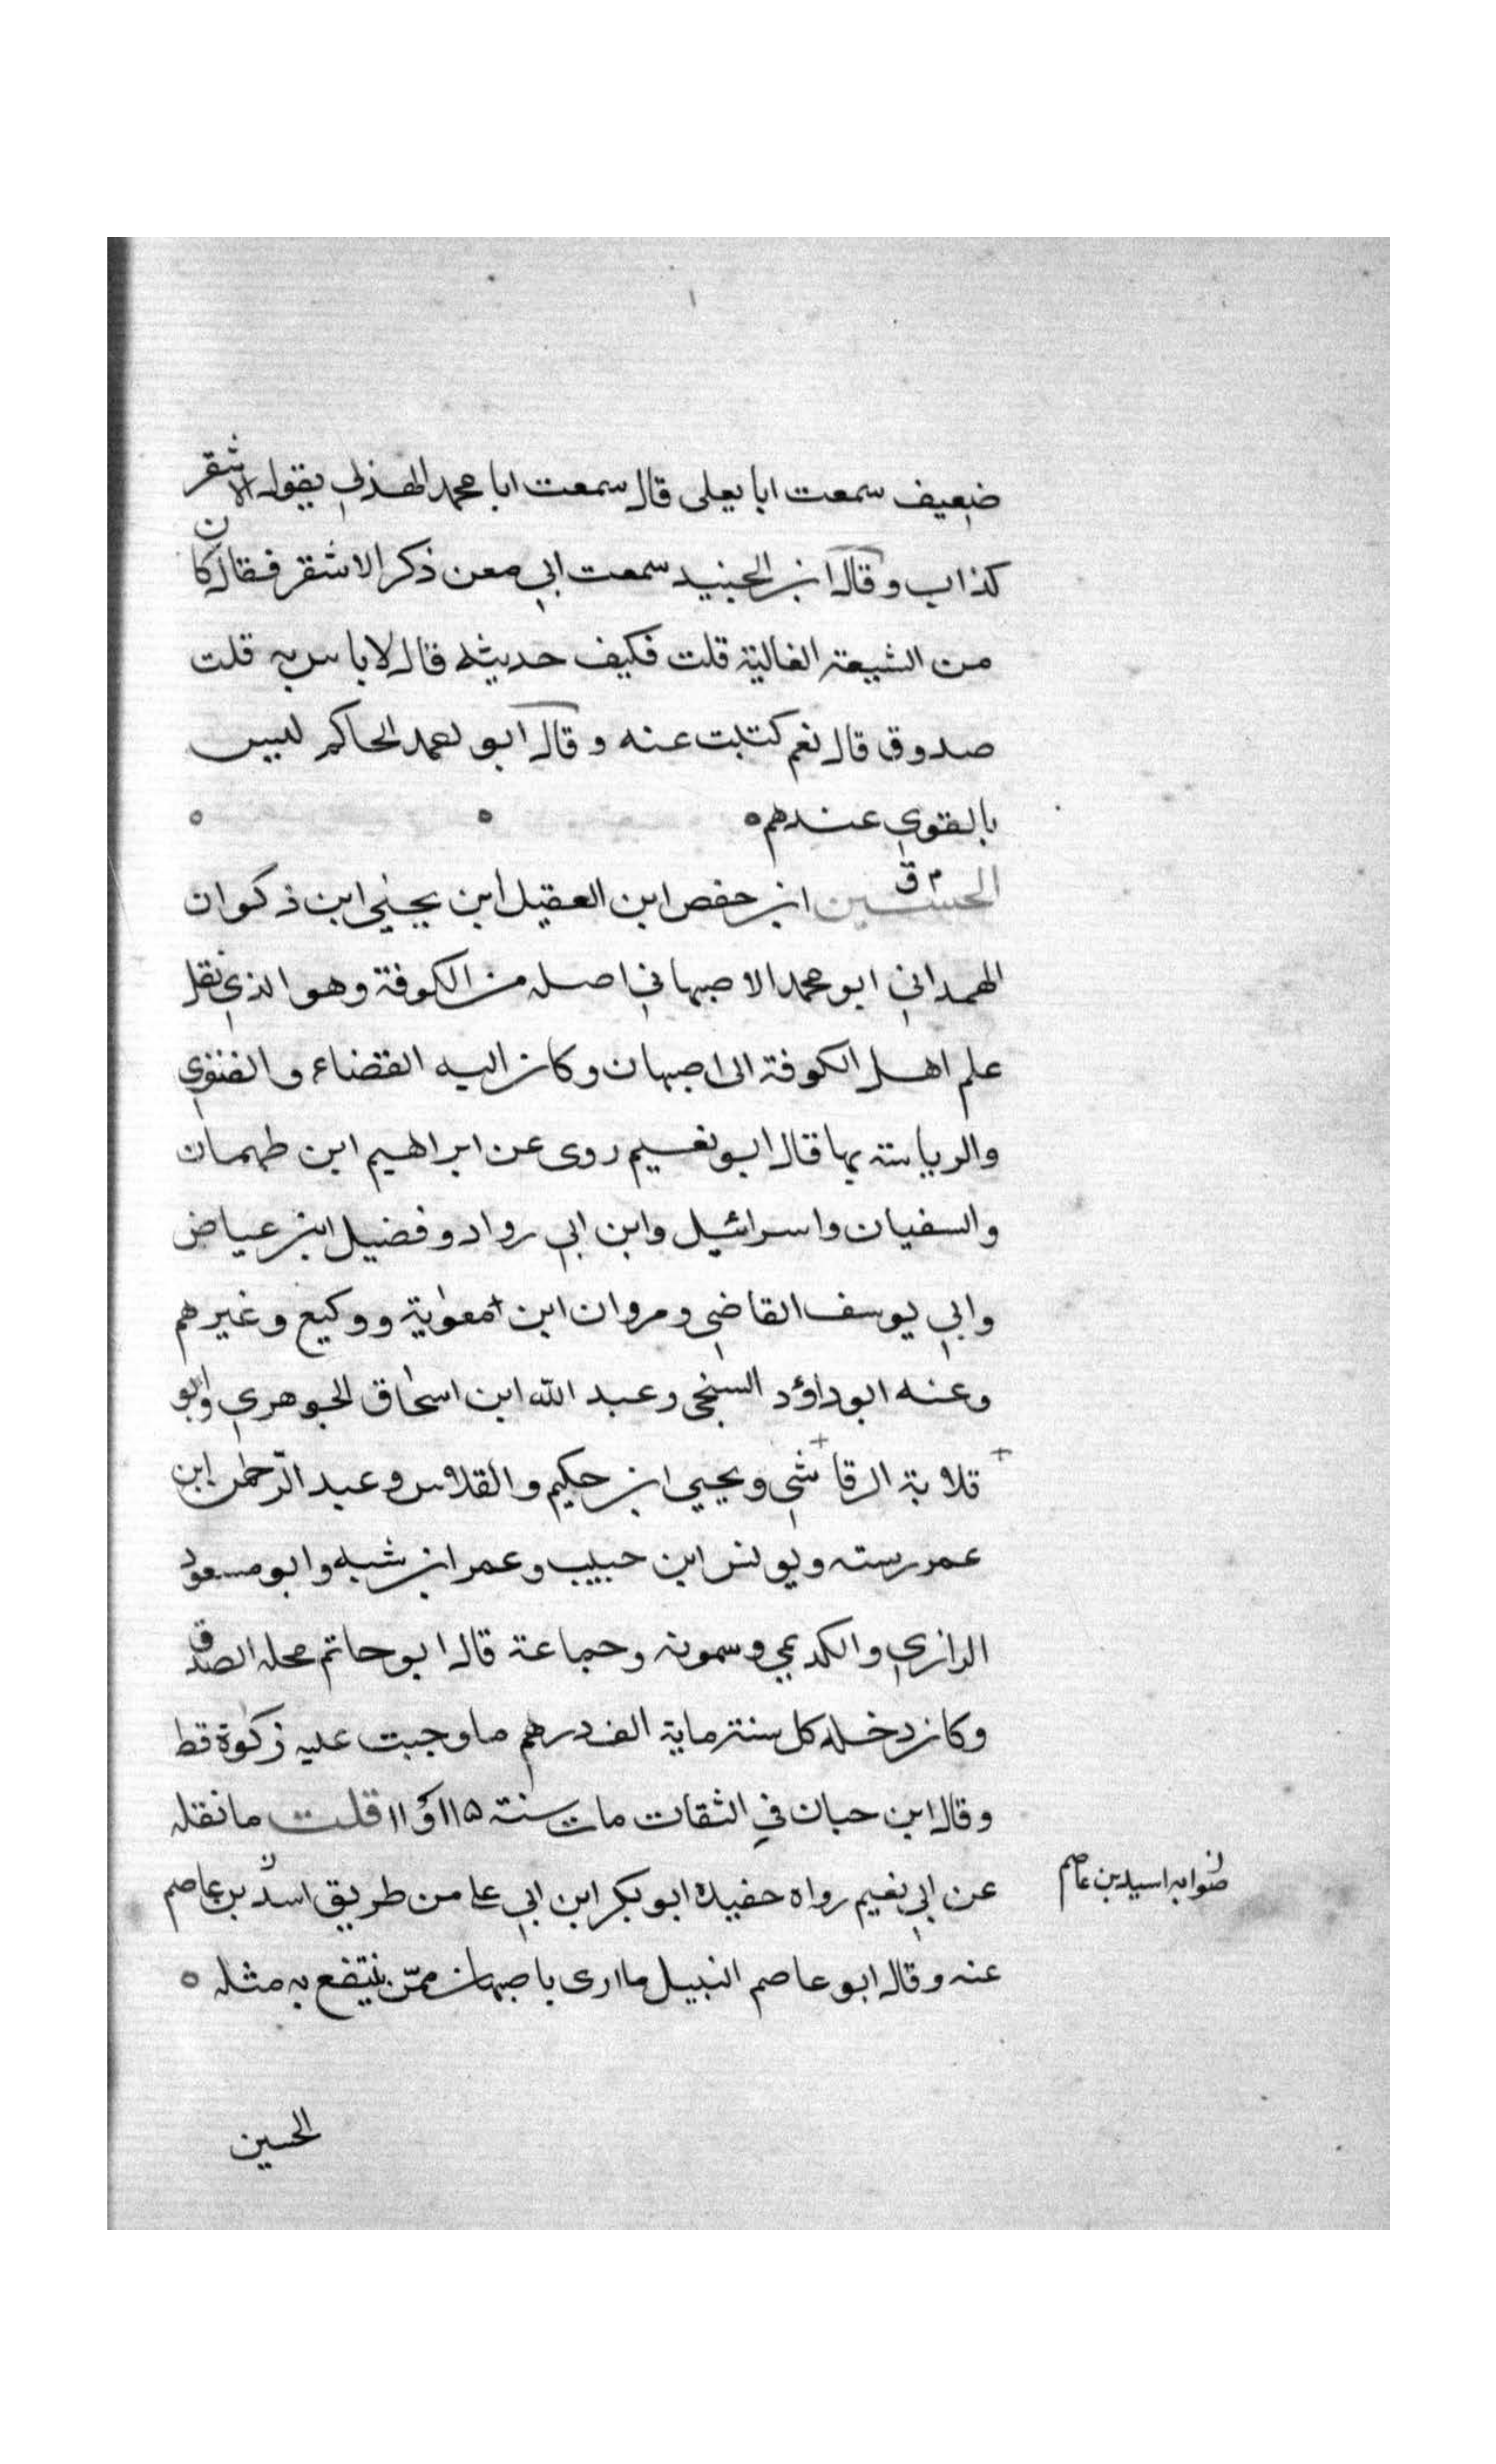 ضعيف سمعت ابا يعلى قال سمعت ابا محمد الهذلي يقول الاشقر
كذاب وقال ابن الجنيد سمعت ابي معن ذكر الاشقر فقال كان
من الشيعة الغالية قلت فكيف حديثه قال لا باس به قلت
صدوق قال نعم كتبت عنه وقال ابو احمد الحاكم ليس
بالقوي عندهم ه ه ه
م ق
الحسين ابن حفص ابن العقيل ابن يحيى ابن ذكوان
الهمداني ابو محمد الاصبهاني اصله من الكوفة وهو الذي نقل
علم اهل الكوفة الى اصبهان وكان اليه القضاء والفتوي
والرياسة بها قال ابو نعيم روى عن ابراهيم ابن طهمان
والسفيان واسرائيل وابن ابي رواد وفضيل ابن عياض
وابي يوسف القاضي ومروان ابن معوية ووكيع وغيرهم
وعنه ابو داؤد السنجي وعبد الله ابن اسحاق الجوهري وابو
قلابة الرقاشي ويحيي ابن حكيم والفلاس وعبد الرحمن ابن
عمر رسته ويونس ابن حبيب وعمر ابن شبه وابو مسعود
الرازي والكديمي وسمويه وجماعة قال ابو حاتم محله الصدق
وكان دخله كل سنة ماية الف درهم ما وجبت عليه زكوة قط
وقال ابن حبان في الثقات مات سنة ١١٥ او ١١ قلت ما نقله
عن ابي نعيم رواه حفيده ابو بكر ابن ابي علي من طريق اسد بن عاصم
عنه وقال ابو عاصم النبيل ما ارى باصبهان ممن ينتفع به مثله ه
صوابه اسيد بن عاصم
الحسين